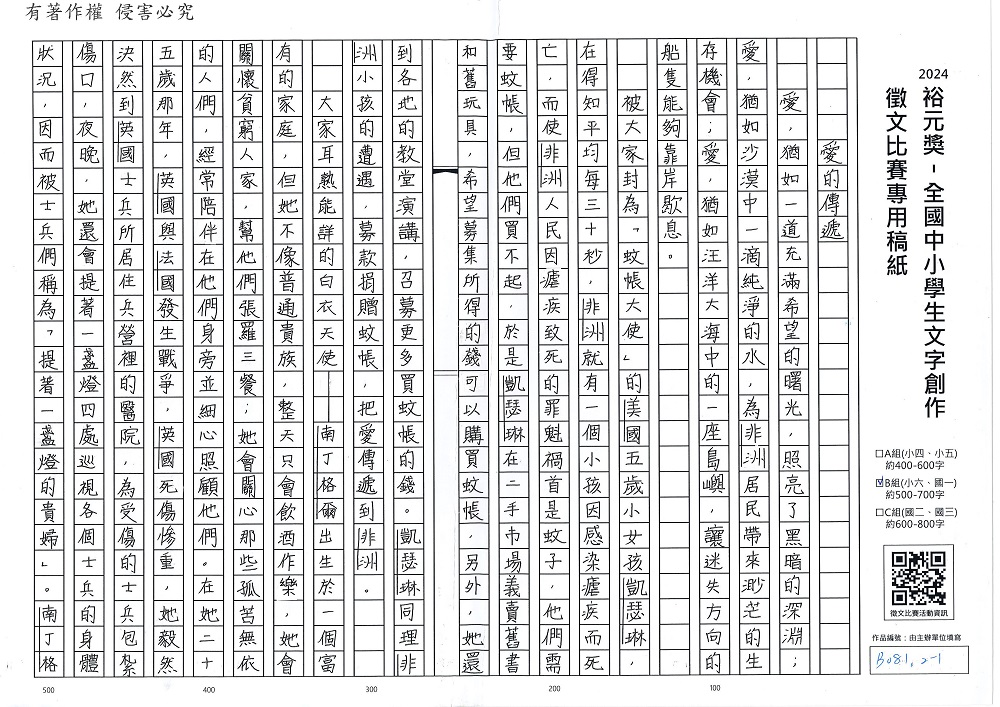 有著作權 侵害必究
2024
裕元獎-全國中小學生文字創作
徵文比賽專用稿紙
□A組(小四、小五)
約400-600字
☑B組(小六、國一)
約500-700字
□C組(國二、國三)
約600-800字
徵文比賽活動資訊
作品編號：由主辦單位填寫
B081,2-1
愛的傳遞
愛，猶如一道充滿希望的曙光，照亮了黑暗的深淵；
愛，猶如沙漠中一滴純淨的水，為非洲居民帶來渺茫的生
存機會；愛，猶如汪洋大海中的一座島嶼，讓迷失方向的
船隻能夠靠岸歇息。
被大家封為「蚊帳大使」的美國五歲小女孩凱瑟琳，
在得知平均每三十秒，非洲就有一個小孩因感染瘧疾而死
亡，而使非洲人民因瘧疾致死的罪魁禍首是蚊子，他們需
要蚊帳，但他們買不起，於是凱瑟琳在二手市場義賣舊書
和舊玩具，希望募集所得的錢可以購買蚊帳，另外，她還
到各地的教堂演講，召募更多買蚊帳的錢。凱瑟琳同理非
洲小孩的遭遇，募款捐贈蚊帳，把愛傳遞到非洲。
大家耳熟能詳的白衣天使——南丁格爾出生於一個富
有的家庭，但她不像普通貴族，整天只會飲酒作樂，她會
關懷貧窮人家，幫他們張羅三餐；她會關心那些孤苦無依
的人們，經常陪伴在他們身旁並細心照顧他們。在她二十
五歲那年，英國與法國發生戰爭，英國死傷慘重，她毅然
決然到英國士兵所居住兵營裡的醫院，為受傷的士兵包紮
傷口，夜晚，她還會提著一盞燈四處巡視各個士兵的身體
狀況，因而被士兵們稱為「提著一盞燈的貴婦」。南丁格
100
200
300
400
500